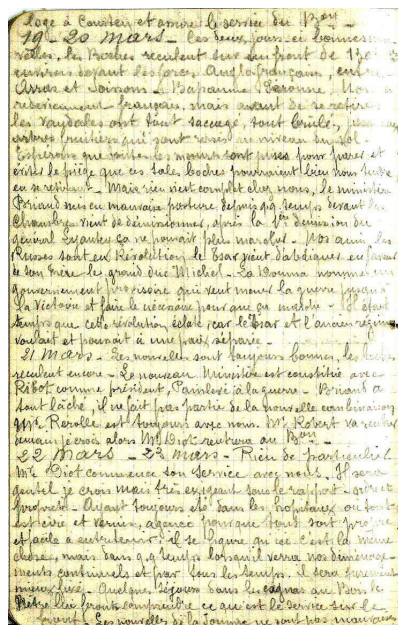 loge à Courteu et assure le service du Bon -
19 - 20 mars - Ces deux jours-ci bonnes nou-
velles, les Boches reculent sur un front de 120 K
environ devant les forces Anglo françaises, entre
Arras et Soissons - Bapaume Peronne Noyon
redeviennent français, mais avant de se retirer
les vandales ont tout saccagé, tout brûlé, jusqu'aux
arbres fruitiers qui sont rasés au niveau du sol.
Espérons que toutes les mesures sont prises pour parer et
éviter le piège que ces sales boches pourraient bien nous tendre
en se retirant - Mais rien n'est complet chez nous, le ministère
Briand mis en mauvaise posture depuis q.q. temps devant les
Chambres vient de démissionner, après la démission du
général Lyautey ça ne pouvait plus marcher - Nos amis les
Russes sont en Révolution le tsar vient d'abdiquer en faveur
de son frère le grand duc Michel - La Douma nomme un
gouvernement provisoire qui veut mener la guerre jusqu'à
la victoire et faire le nécessaire pour que ça marche - Il était
temps que cette révolution éclate, car le tsar et l'ancien régime
voulait et pouvait à une paix séparée -
21 Mars - Les nouvelles sont toujours bonnes, les boches
reculent encore - Le nouveau Ministère est constitué avec
Ribot comme président, Painlevé à la guerre - Briand a
tout lâché, il ne fait pas partie de la nouvelle combinaison
Mr Rerolle est toujours avec nous. Mr Robert va rentrer
demain je crois alors Mr Diot rentrera au Bon
22 Mars - 23 mars - Rien de particulier
Mr Diot commence son service avec nous. Il sera
gentil je crois mais très exigeant sous le rapport - ordre et
propreté - Ayant toujours été dans les hôpitaux où tout
est ciré et vernis, agencé pour que tout soit propre
et facile à entretenir, il se figure qu'ici c'est la même
chose, mais dans q.q. temps lorsqu'il verra nos déménage-
ments continuels et par tous les temps, il sera sûrement
mieux fixé - Quelques séjours dans les cagnas au Bois le
Prêtre lui feront comprendre ce qu'est le service sur le
front - Les nouvelles de la Somme ne sont pas mauvaises